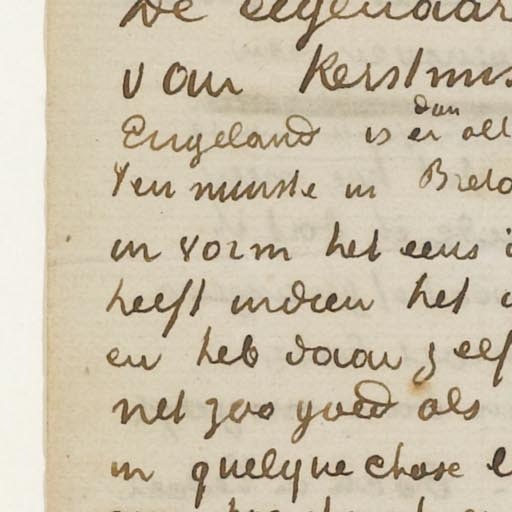 De eigenaar
van Kerstmis
dan
Engeland is er all
Ten minste in Breta
in vorm het eens
heeft indien het
en heb daar zelf
net zoo goed als
in quelque chose